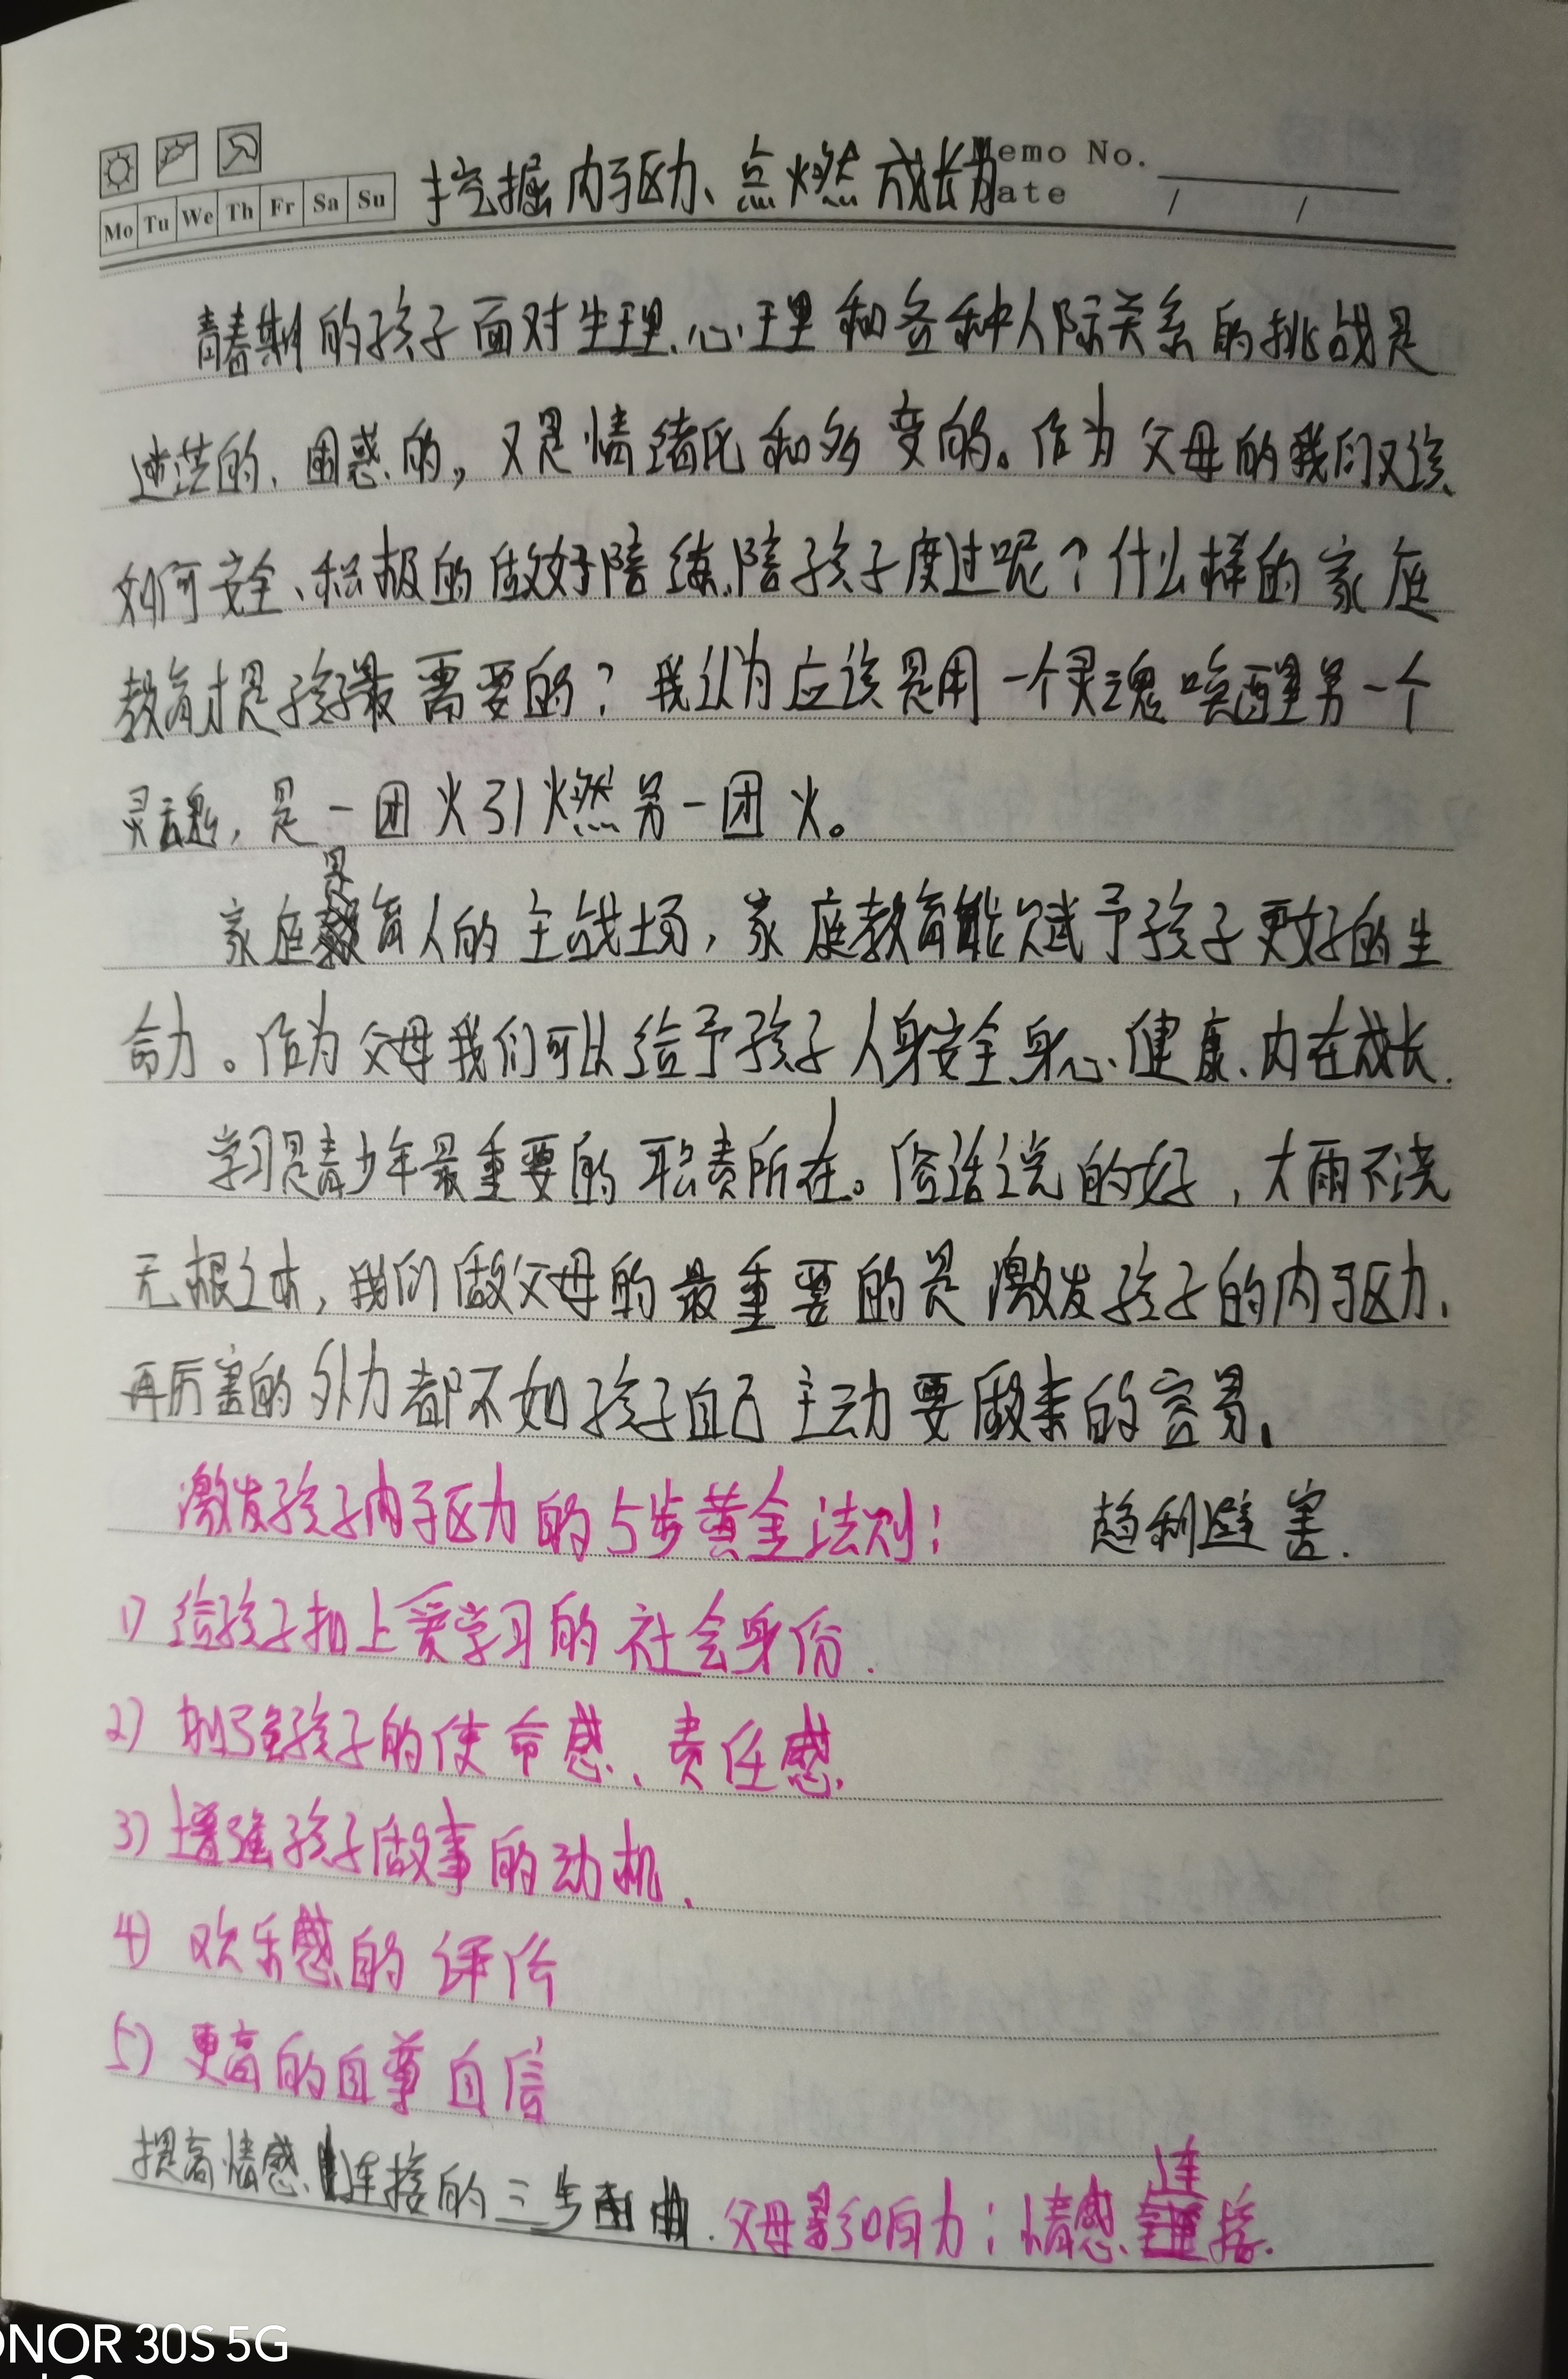 Mo Tu We Th Fr Sa Su
挖掘内驱力、点燃成长力
emo No.
ate / /
青春期的孩子面对生理、心理和各种人际关系的挑战是
迷茫的、困惑的，又是情绪化和多变的。作为父母的我们又该
如何安全、积极的做好陪练、陪孩子度过呢？什么样的家庭
教育才是孩子最需要的？我认为应该是用一个灵魂唤醒另一个
灵魂，是一团火引燃另一团火。
家庭是育人的主战场，家庭教育能赋予孩子更好的生
命力。作为父母我们可以给予孩子人身安全、身心健康、内在成长.
学习是青少年最重要的职责所在。俗话说的好，大雨不浇
无根之木，我们做父母的最重要的是激发孩子的内驱力、
再厉害的外力都不如孩子自己主动要做来的容易、
激发孩子内驱力的5步黄金法则： 趋利避害.
1) 给孩子扣上爱学习的社会身份.
2) 加强孩子的使命感、责任感.
3) 增强孩子做事的动机.
4) 欢乐感的评价
5) 更高的自尊自信
提高情感连接的三步曲. 父母影响力：情感连接.
ONOR 30S 5G